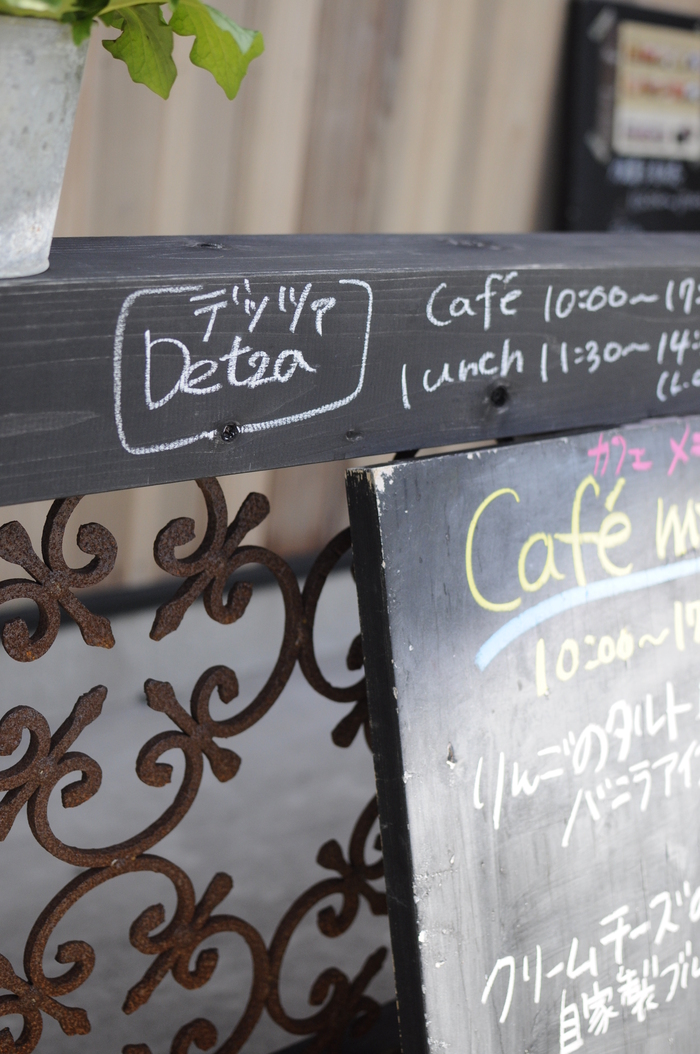 デッツァ
Detza
Café 10:00〜17:
lunch 11:30〜14:
(L.O
カフェ メニ
Café m
10:00〜17
りんごのタルト
バニラアイ
クリームチーズの
自家製ブル